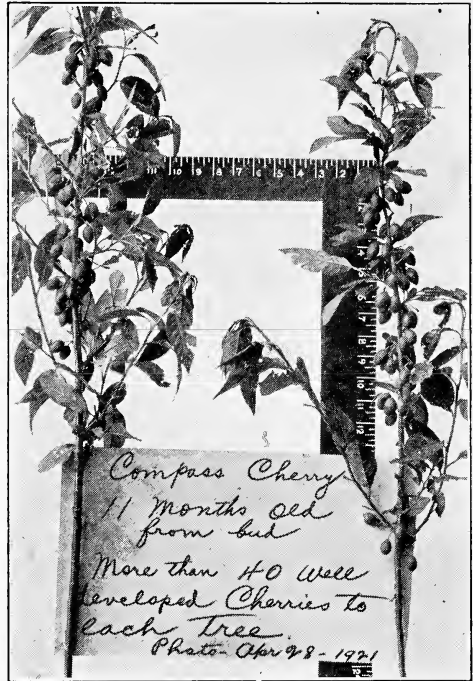 11 10 9 8 7 6 5 4 3 2
Compass Cherry
11 Months Old
from bud
More than 40 Well
developed Cherries to
each Tree.
Photo- Apr 28 - 1921